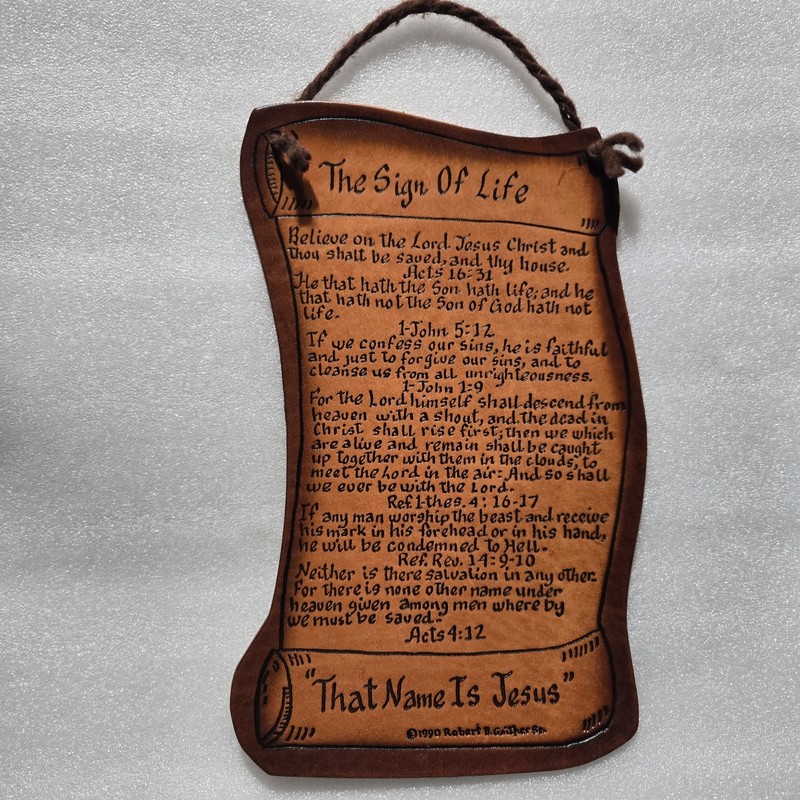 The Sign Of Life
Believe on the Lord Jesus Christ and
thou shalt be saved, and thy house.
Acts 16:31
He that hath the Son hath life; and he
that hath not the Son of God hath not
life.
1-John 5:12
If we confess our sins, he is faithful
and just to forgive our sins, and to
cleanse us from all unrighteousness.
1-John 1:9
For the Lord himself shall descend from
heaven with a shout, and the dead in
Christ shall rise first; then we which
are alive and remain shall be caught
up together with them in the clouds, to
meet the Lord in the air: And so shall
we ever be with the Lord.
Ref. 1-thes. 4: 16-17
If any man worship the beast and receive
his mark in his forehead or in his hand,
he will be condemned to Hell.
Ref. Rev. 14:9-10
Neither is there salvation in any other:
For there is none other name under
heaven given among men where by
we must be saved.
Acts 4:12
"That Name Is Jesus"
©1990 Robert B. Gaither Sr.